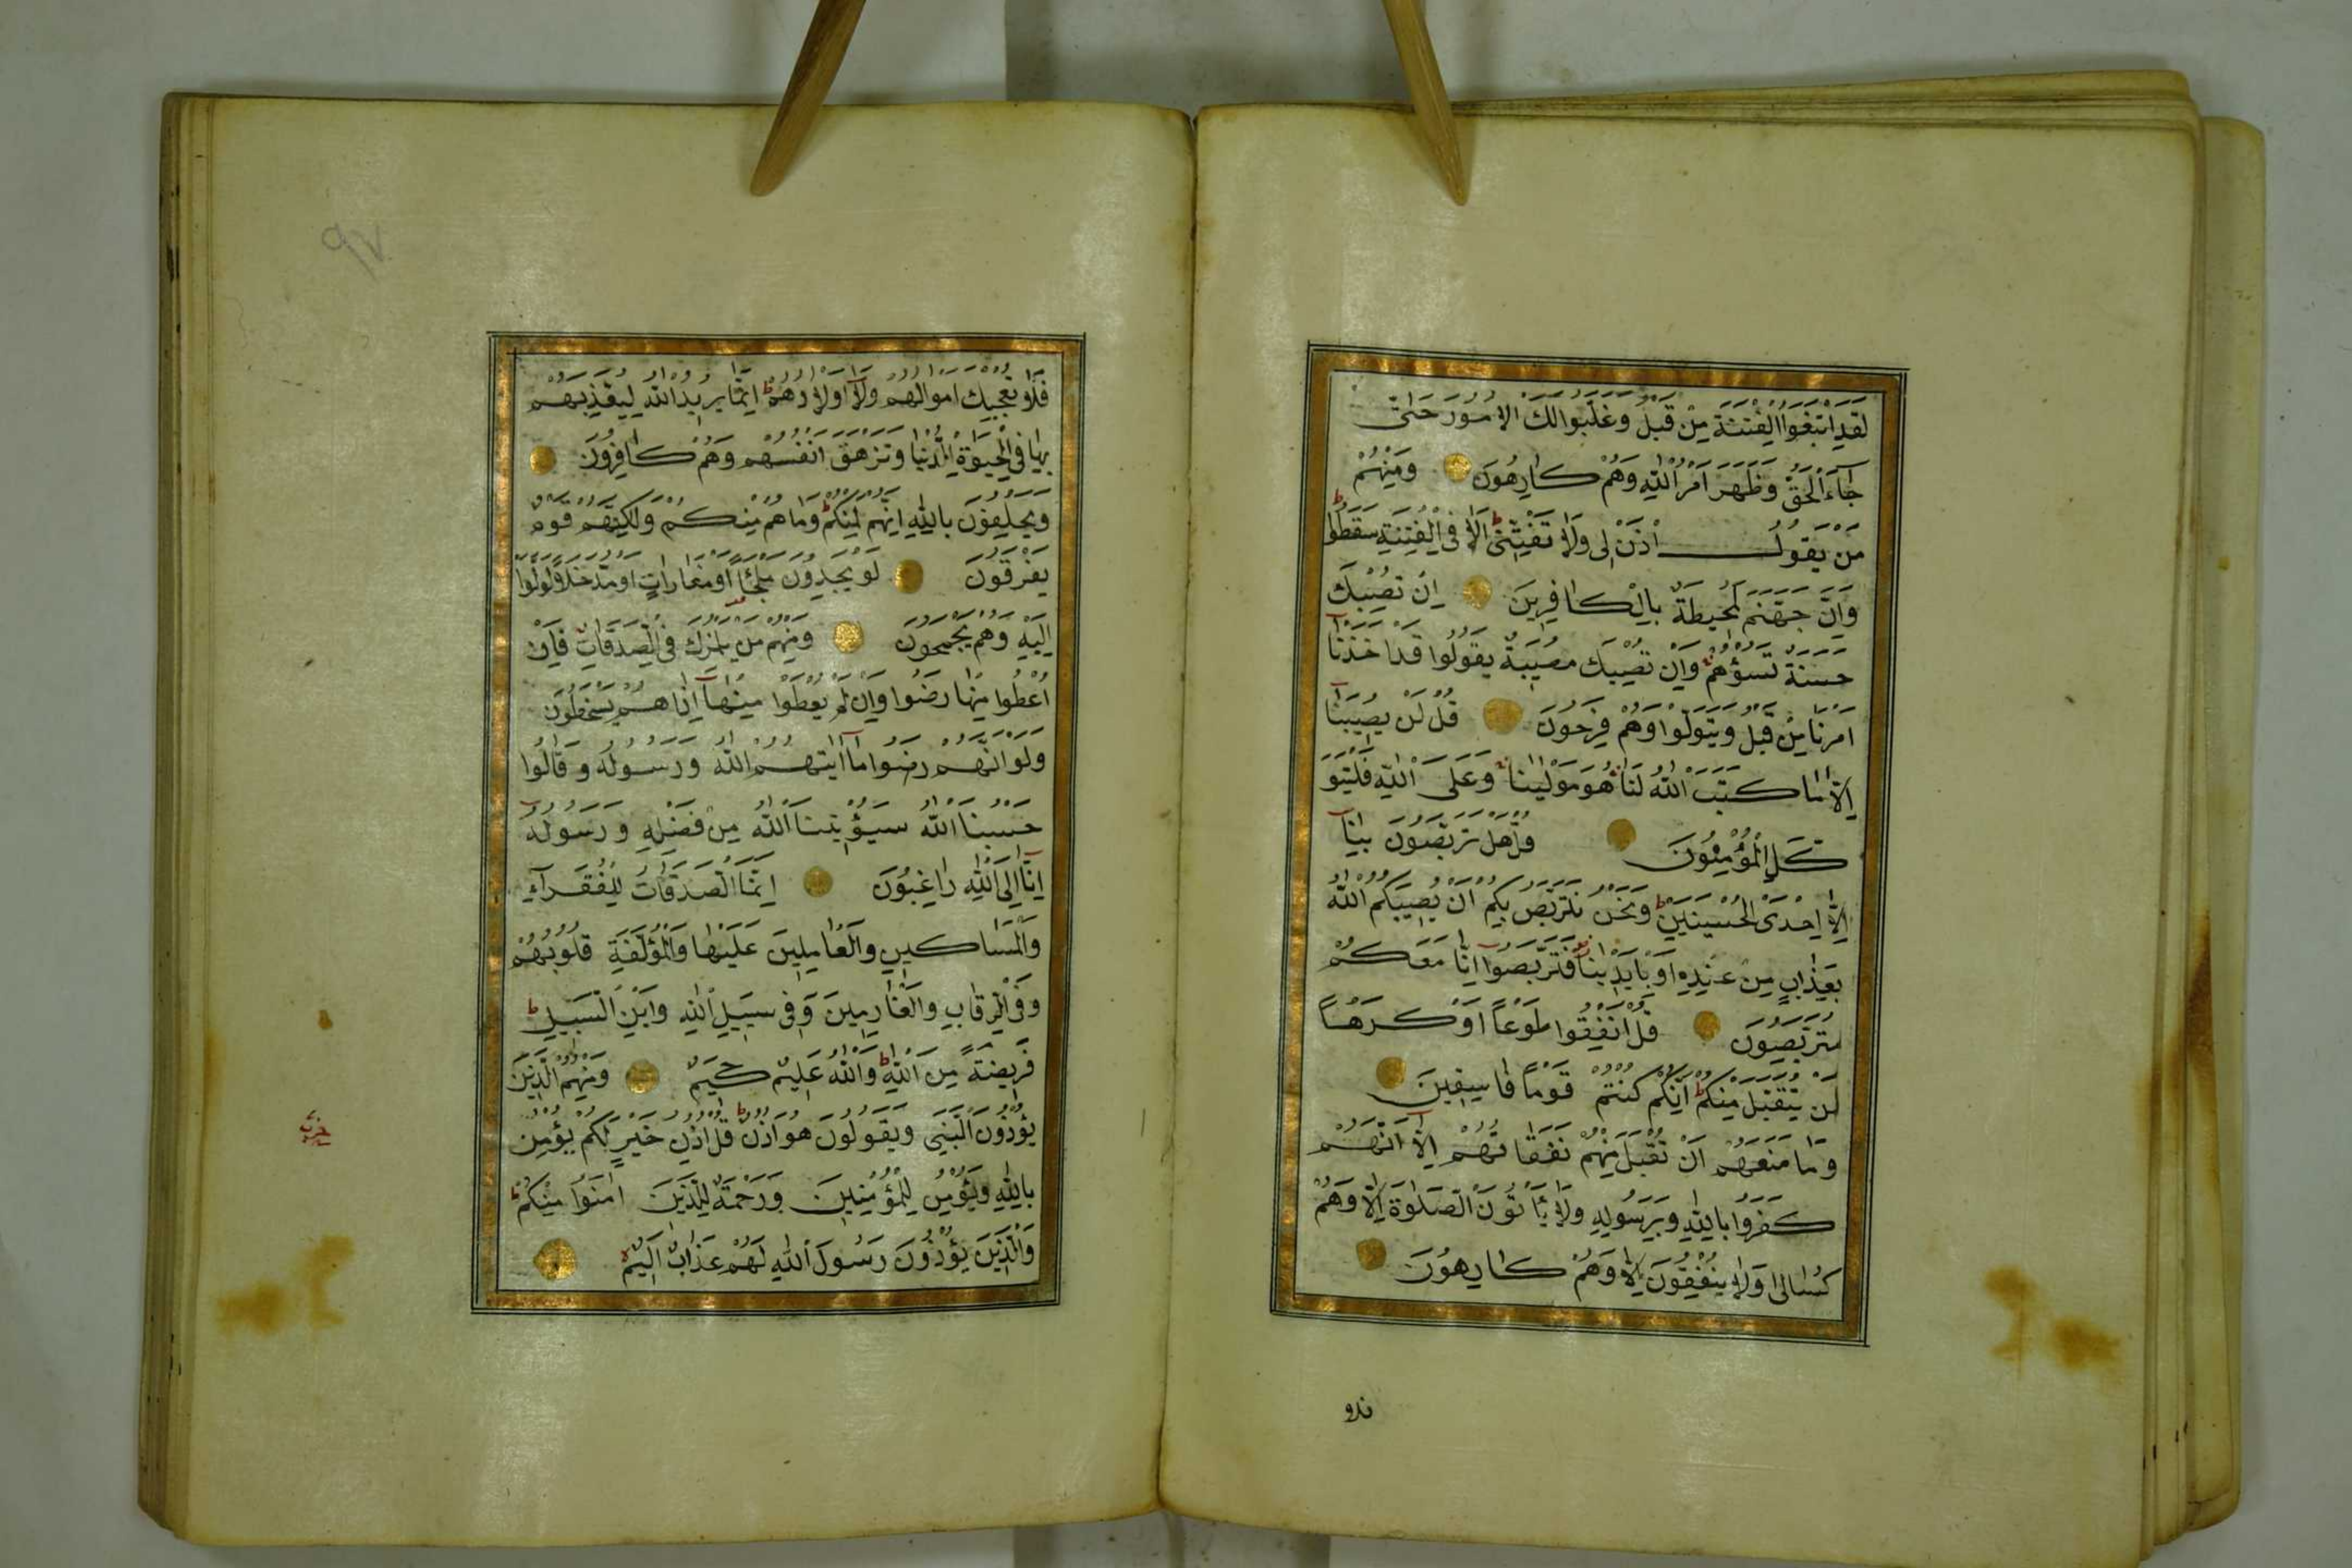 لَقَدِ ابْتَغَوُا الْفِتْنَةَ مِنْ قَبْلُ وَقَلَّبُوا لَكَ الْأُمُورَ حَتّٰى
جَآءَ الْحَقُّ وَظَهَرَ اَمْرُ اللّٰهِ وَهُمْ كَارِهُونَ وَمِنْهُمْ
مَنْ يَقُولُ ائْذَنْ لِى وَلَا تَفْتِنِّى اَلَا فِى الْفِتْنَةِ سَقَطُوا ط
وَاِنَّ جَهَنَّمَ لَمُحِيطَةٌ بِالْكَافِرِينَ اِنْ تُصِبْكَ
حَسَنَةٌ تَسُؤْهُمْ وَاِنْ تُصِبْكَ مُصِيبَةٌ يَقُولُوا قَدْ اَخَذْنَا
اَمْرَنَا مِنْ قَبْلُ وَيَتَوَلَّوْا وَهُمْ فَرِحُونَ قُلْ لَنْ يُصِيبَنَا
اِلَّا مَا كَتَبَ اللّٰهُ لَنَا هُوَ مَوْلٰينَا وَعَلَى اللّٰهِ فَلْيَتَوَ
كَّلِ الْمُؤْمِنُونَ قُلْ هَلْ تَرَبَّصُونَ بِنَا
اِلَّا اِحْدَى الْحُسْنَيَيْنِ ط وَنَحْنُ نَتَرَبَّصُ بِكُمْ اَنْ يُصِيبَكُمُ اللّٰهُ
بِعَذَابٍ مِنْ عِنْدِهِ اَوْ بِاَيْدِينَا فَتَرَبَّصُوا اِنَّا مَعَكُمْ
مُتَرَبِّصُونَ قُلْ اَنْفِقُوا طَوْعًا اَوْ كَرْهًا
لَنْ يُتَقَبَّلَ مِنْكُمْ ط اِنَّكُمْ كُنْتُمْ قَوْمًا فَاسِقِينَ
وَمَا مَنَعَهُمْ اَنْ تُقْبَلَ مِنْهُمْ نَفَقَاتُهُمْ اِلَّا اَنَّهُمْ
كَفَرُوا بِاللّٰهِ وَبِرَسُولِهِ وَلَا يَأْتُونَ الصَّلٰوةَ اِلَّا وَهُمْ
كُسَالٰى وَلَا يُنْفِقُونَ اِلَّا وَهُمْ كَارِهُونَ
٩٧
فَلَا تُعْجِبْكَ اَمْوَالُهُمْ وَلَآ اَوْلَادُهُمْ ط اِنَّمَا يُرِيدُ اللّٰهُ لِيُعَذِّبَهُمْ
بِهَا فِى الْحَيٰوةِ الدُّنْيَا وَتَزْهَقَ اَنْفُسُهُمْ وَهُمْ كَافِرُونَ
وَيَحْلِفُونَ بِاللّٰهِ اِنَّهُمْ لَمِنْكُمْ ط وَمَا هُمْ مِنْكُمْ وَلٰكِنَّهُمْ قَوْمٌ
يَفْرَقُونَ لَوْ يَجِدُونَ مَلْجَأً اَوْ مَغَارَاتٍ اَوْ مُدَّخَلًا لَوَلَّوْا
اِلَيْهِ وَهُمْ يَجْمَحُونَ وَمِنْهُمْ مَنْ يَلْمِزُكَ فِى الصَّدَقَاتِ فَاِنْ
اُعْطُوا مِنْهَا رَضُوا وَاِنْ لَمْ يُعْطَوْا مِنْهَآ اِذَا هُمْ يَسْخَطُونَ
وَلَوْ اَنَّهُمْ رَضُوا مَآ اٰتٰيهُمُ اللّٰهُ وَرَسُولُهُ وَقَالُوا
حَسْبُنَا اللّٰهُ سَيُؤْتِينَا اللّٰهُ مِنْ فَضْلِهِ وَرَسُولُهُ
اِنَّآ اِلَى اللّٰهِ رَاغِبُونَ اِنَّمَا الصَّدَقَاتُ لِلْفُقَرَآءِ
وَالْمَسَاكِينِ وَالْعَامِلِينَ عَلَيْهَا وَالْمُؤَلَّفَةِ قُلُوبُهُمْ
وَفِى الرِّقَابِ وَالْغَارِمِينَ وَفِى سَبِيلِ اللّٰهِ وَابْنِ السَّبِيلِ ط
فَرِيضَةً مِنَ اللّٰهِ ط وَاللّٰهُ عَلِيمٌ حَكِيمٌ وَمِنْهُمُ الَّذِينَ
يُؤْذُونَ النَّبِىَّ وَيَقُولُونَ هُوَ اُذُنٌ ط قُلْ اُذُنُ خَيْرٍ لَكُمْ يُؤْمِنُ
بِاللّٰهِ وَيُؤْمِنُ لِلْمُؤْمِنِينَ وَرَحْمَةٌ لِلَّذِينَ اٰمَنُوا مِنْكُمْ ط
وَالَّذِينَ يُؤْذُونَ رَسُولَ اللّٰهِ لَهُمْ عَذَابٌ اَلِيمٌ
حزب